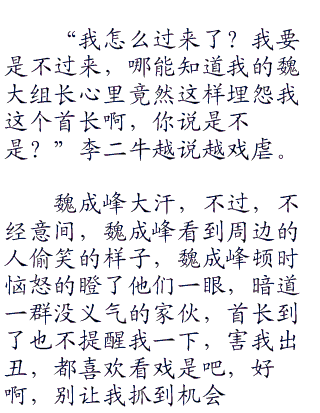 “我怎么过来了？我要
是不过来，哪能知道我的魏
大组长心里竟然这样埋怨我
这个首长啊，你说是不
是？”李二牛越说越戏虐。
魏成峰大汗，不过，不
经意间，魏成峰看到周边的
人偷笑的样子，魏成峰顿时
恼怒的瞪了他们一眼，暗道
一群没义气的家伙，首长到
了也不提醒我一下，害我出
丑，都喜欢看戏是吧，好
啊，别让我抓到机会